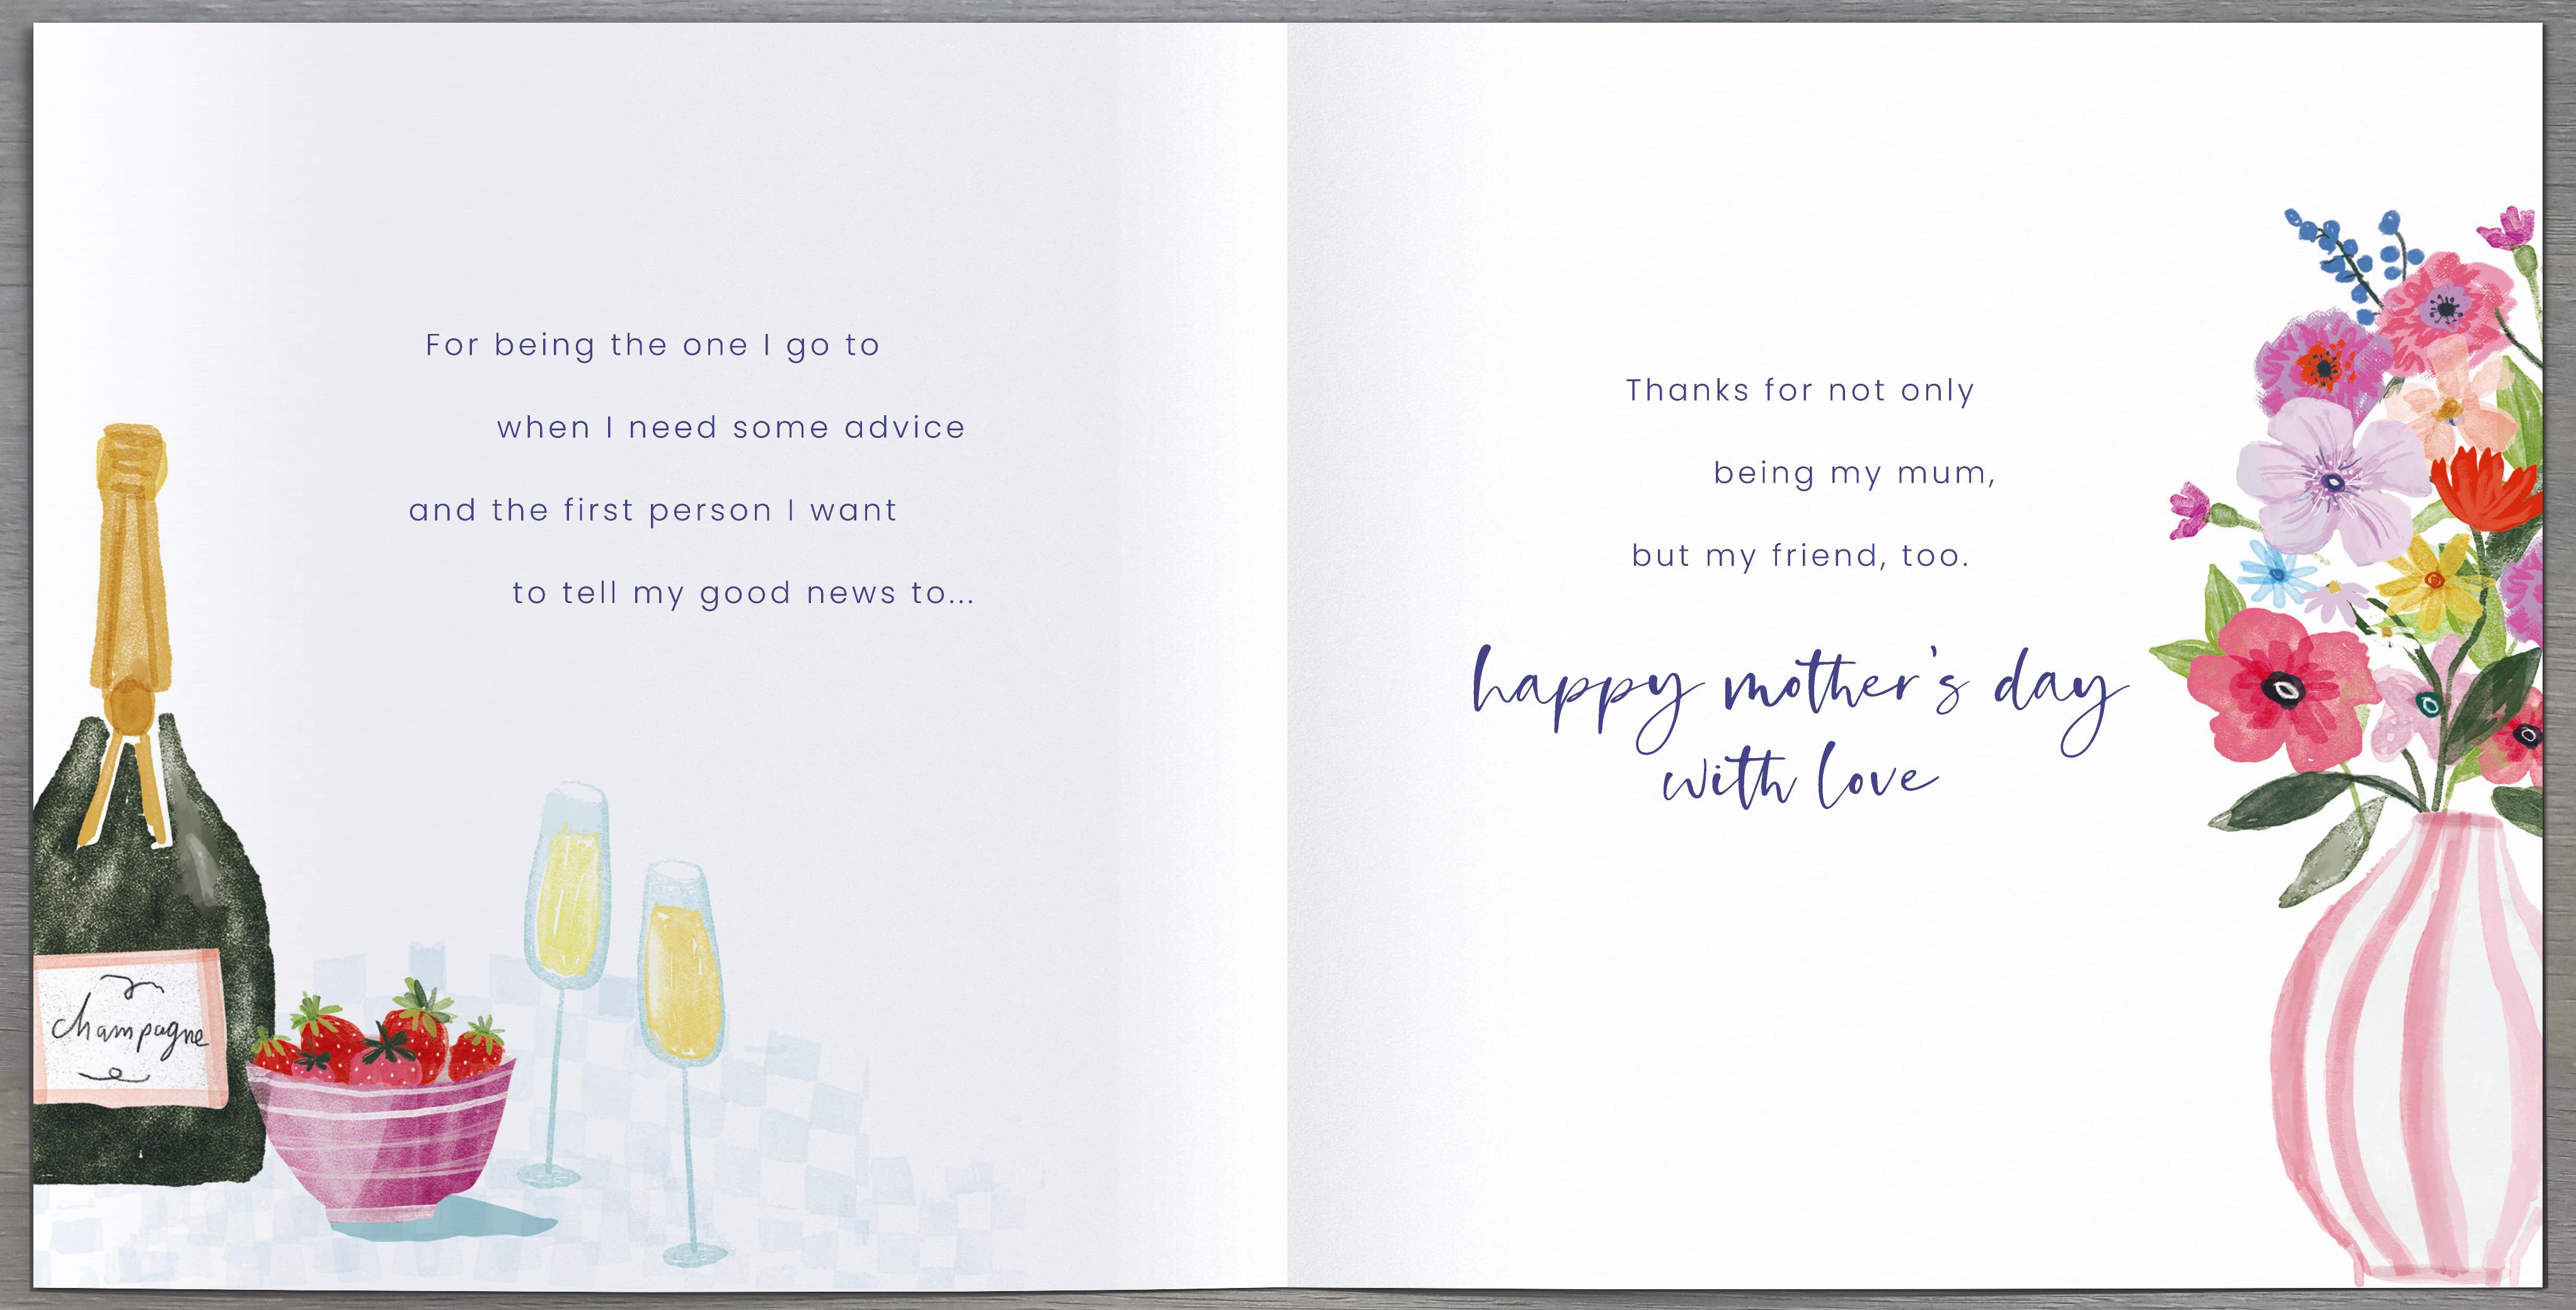 For being the one I go to
when I need some advice
and the first person I want
to tell my good news to...
champagne
Thanks for not only
being my mum,
but my friend, too.
happy mother's day
with love